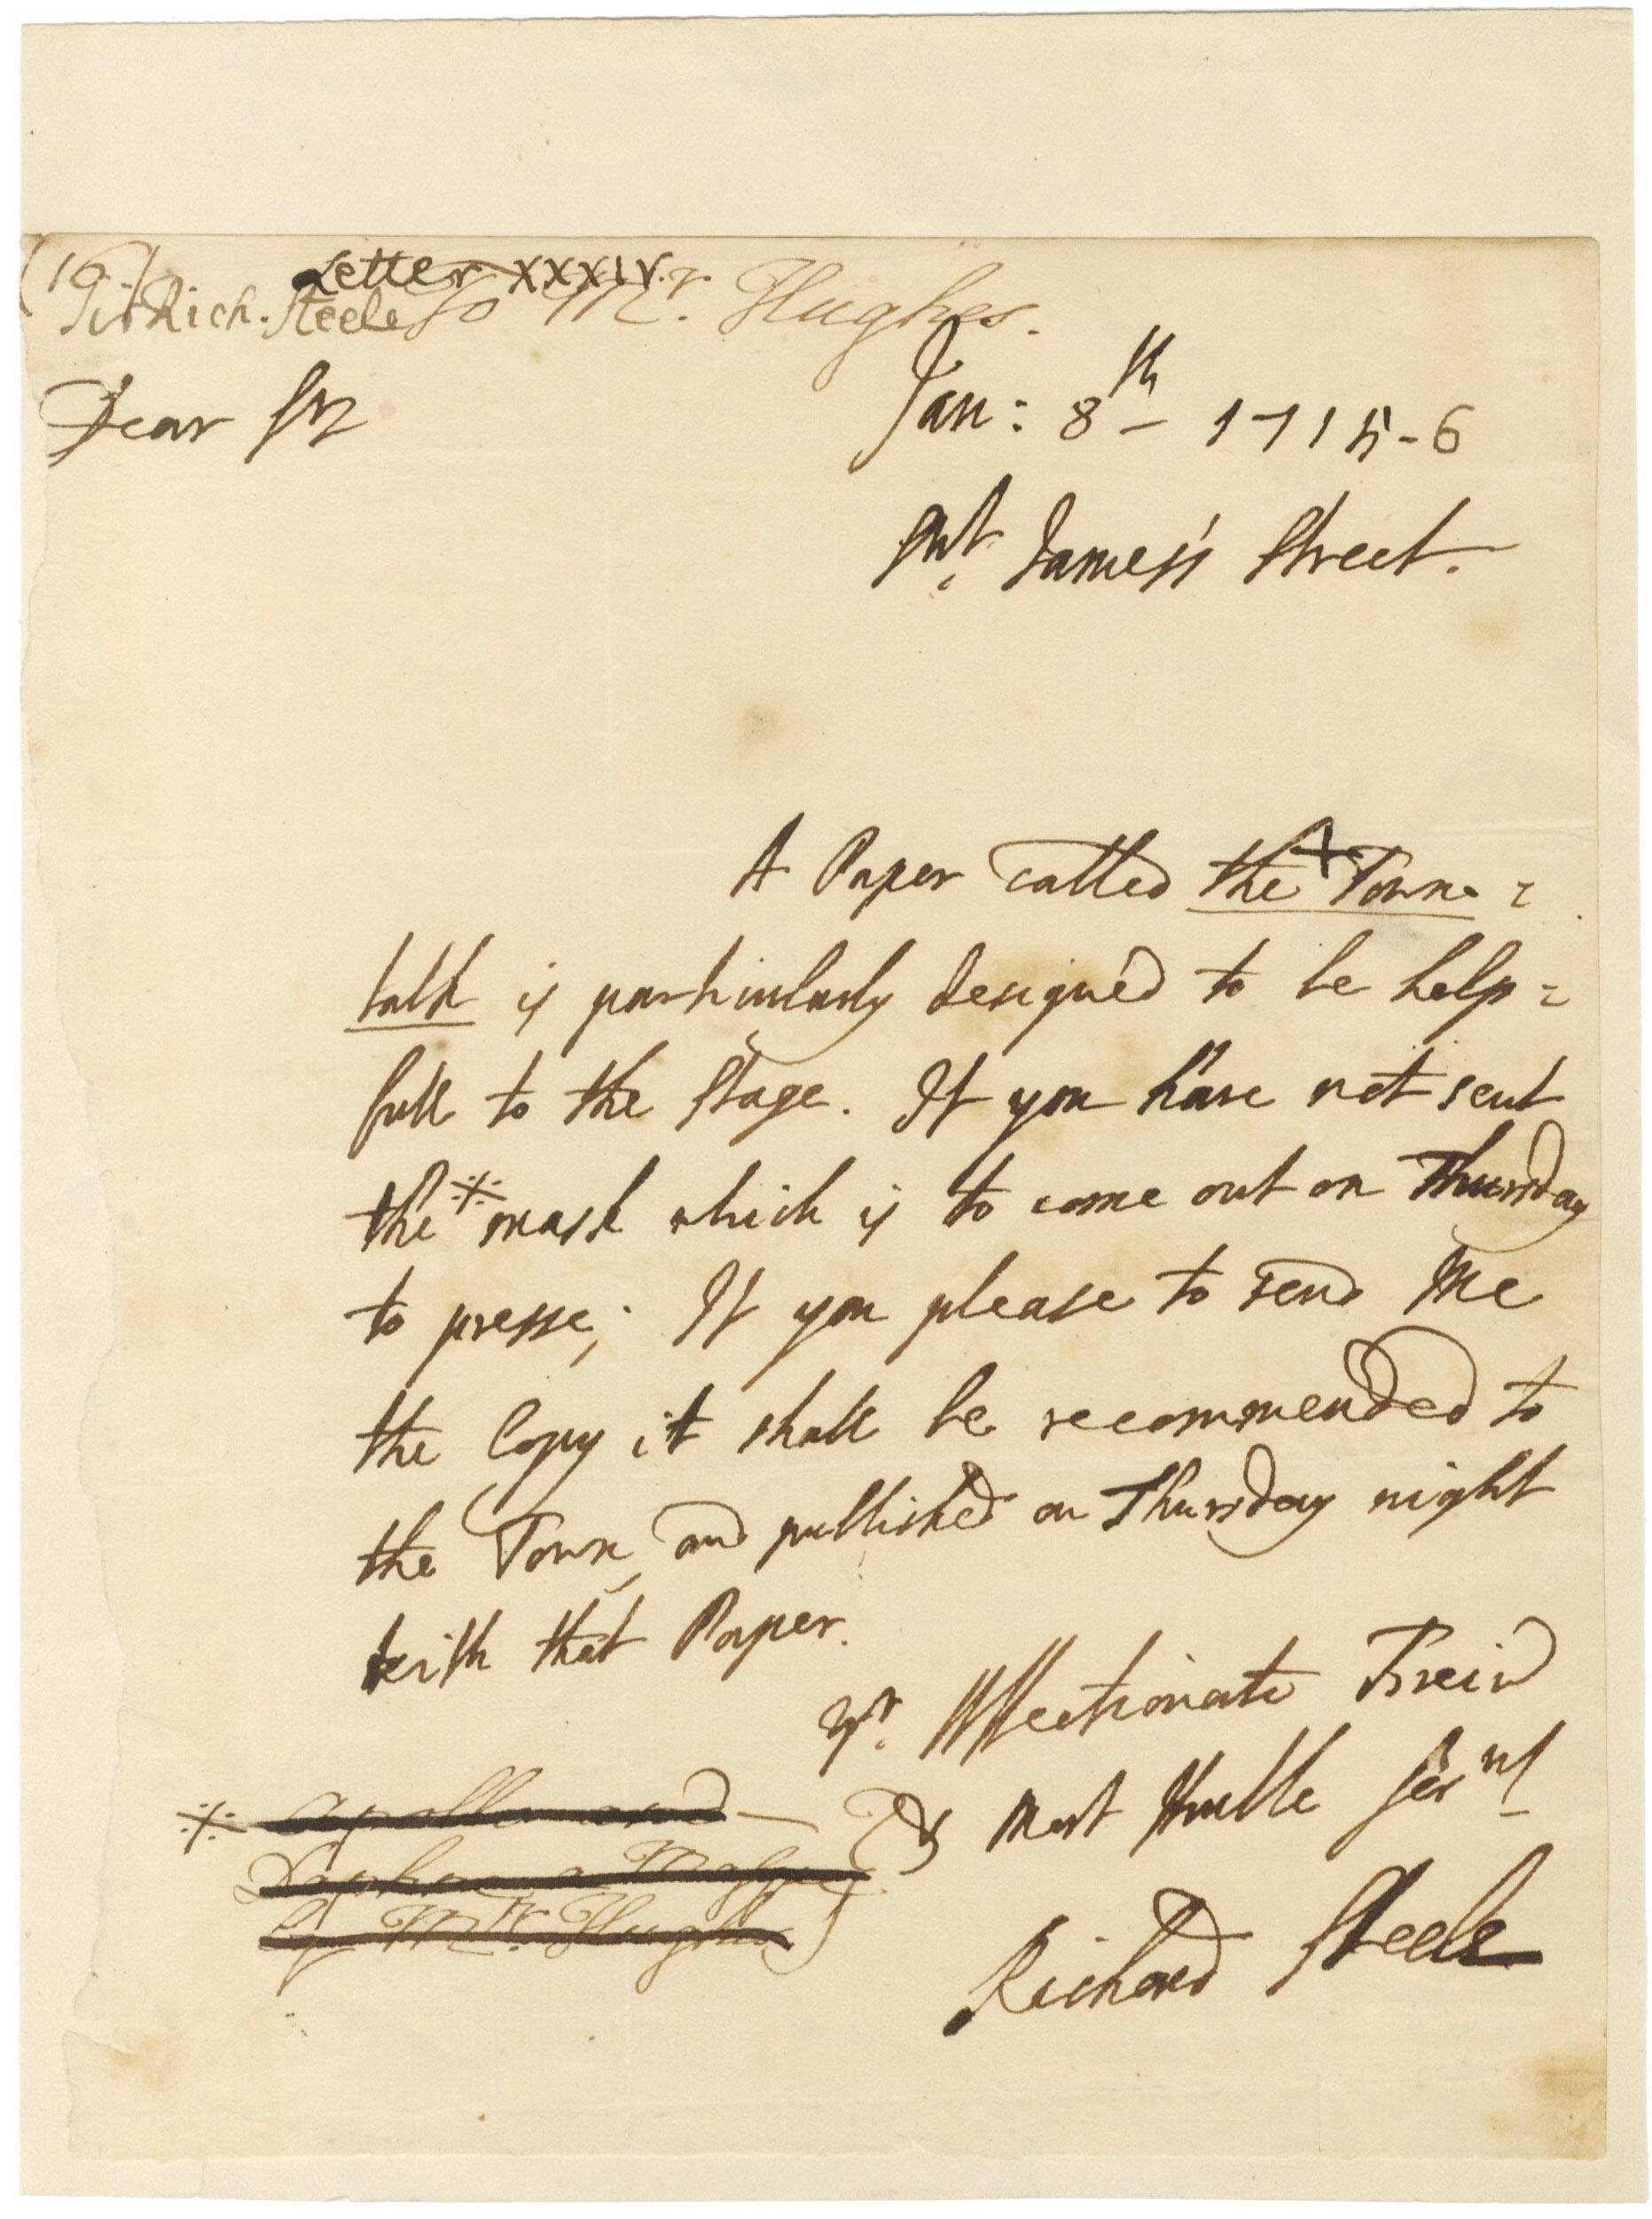 (19)
Letter XXXIV.
Sir Rich. Steele to Mr. Hughes.
Dear Sr
Jan: 8th - 1715-6
Snt. James's Street.
A Paper called the Town=
talk is particularly designed to be help=
full to the Stage. If you have not sent
the mask which is to come out on Thursday
to presse; If you please to send Me
the Copy it shall be recommended to
the Town, and published on Thursday night
with that Paper.
yr. Affectionate Freind
& Most Humble Sernt
Richard Steele
Apollo and
Daphne a Masque
by Mr. Hughes